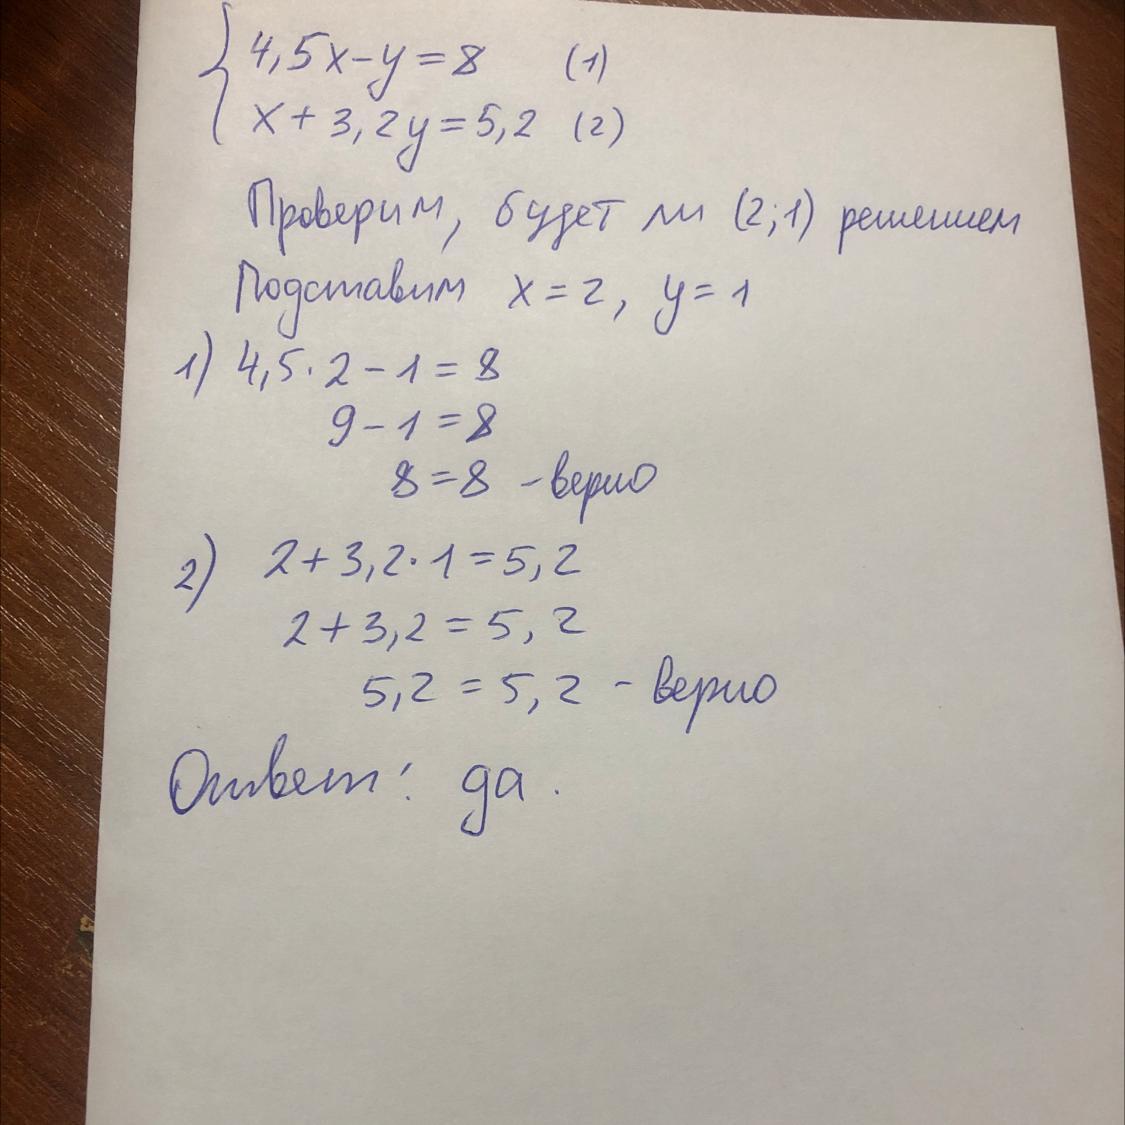 4,5x-y=8 (1)
x+3,2y=5,2 (2)
Проверим, будет ли (2;1) решением
Подставим x=2, y=1
1) 4,5·2-1=8
9-1=8
8=8 -верно
2) 2+3,2·1=5,2
2+3,2=5,2
5,2=5,2 - верно
Ответ: да.